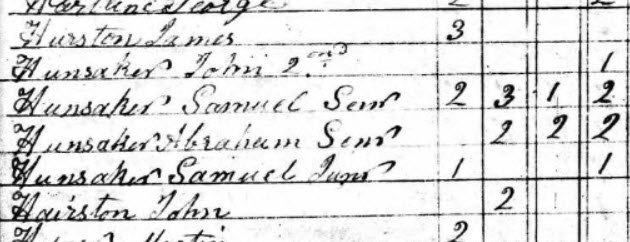 George 2 2
Hurston James 3
Hunsaker John 2nd 1
Hunsaker Samuel Senr 2 3 1 2
Hunsaker Abraham Senr 2 2 2
Hunsaker Samuel Junr 1 1
Hairston John 2
Martin 2